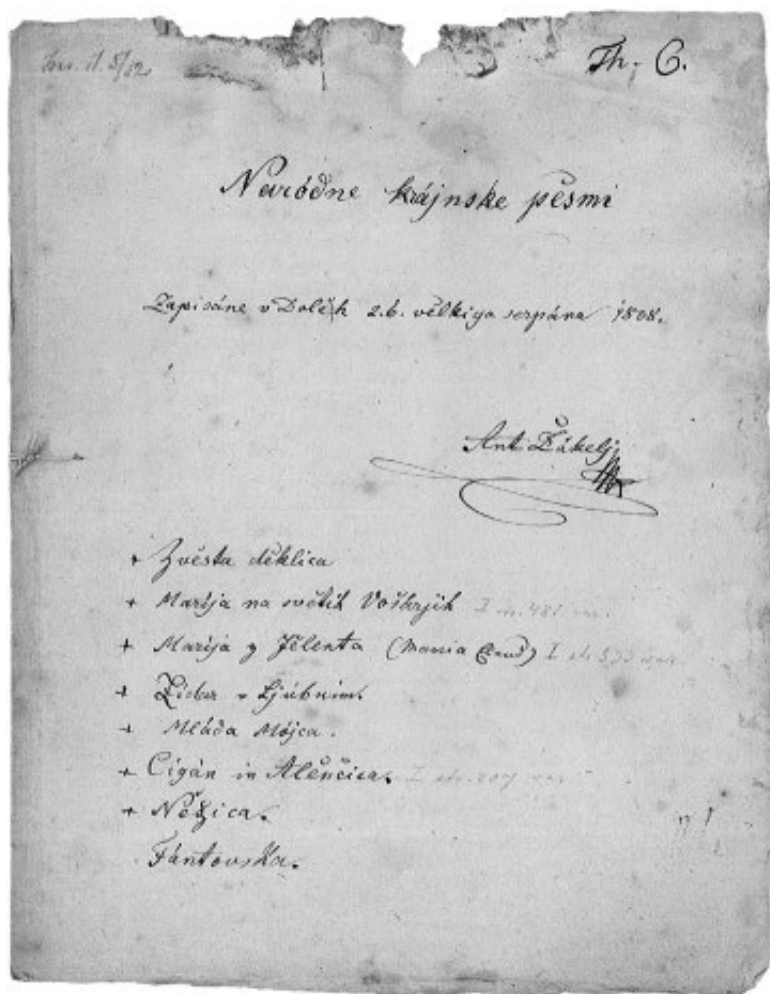 Inv. d. 5/82
Th. C.
Naródne krájnske pěsmi
Zapisáne v Doléh 26. vélkiga serpána 1808.
Ant Žákelj
+ Zvésta děklica
+ Marija na svétih Voſharjih I str. 481.
+ Marija z Jélenta (Maria Elend) I str.
+ Zidar v Ljúbnim.
+ Mláda Mójca.
+ Cigán in Alěnčica. I str. 207
+ Néžica.
Fántovska.